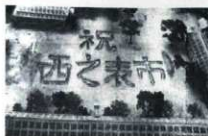 祝
西之表市